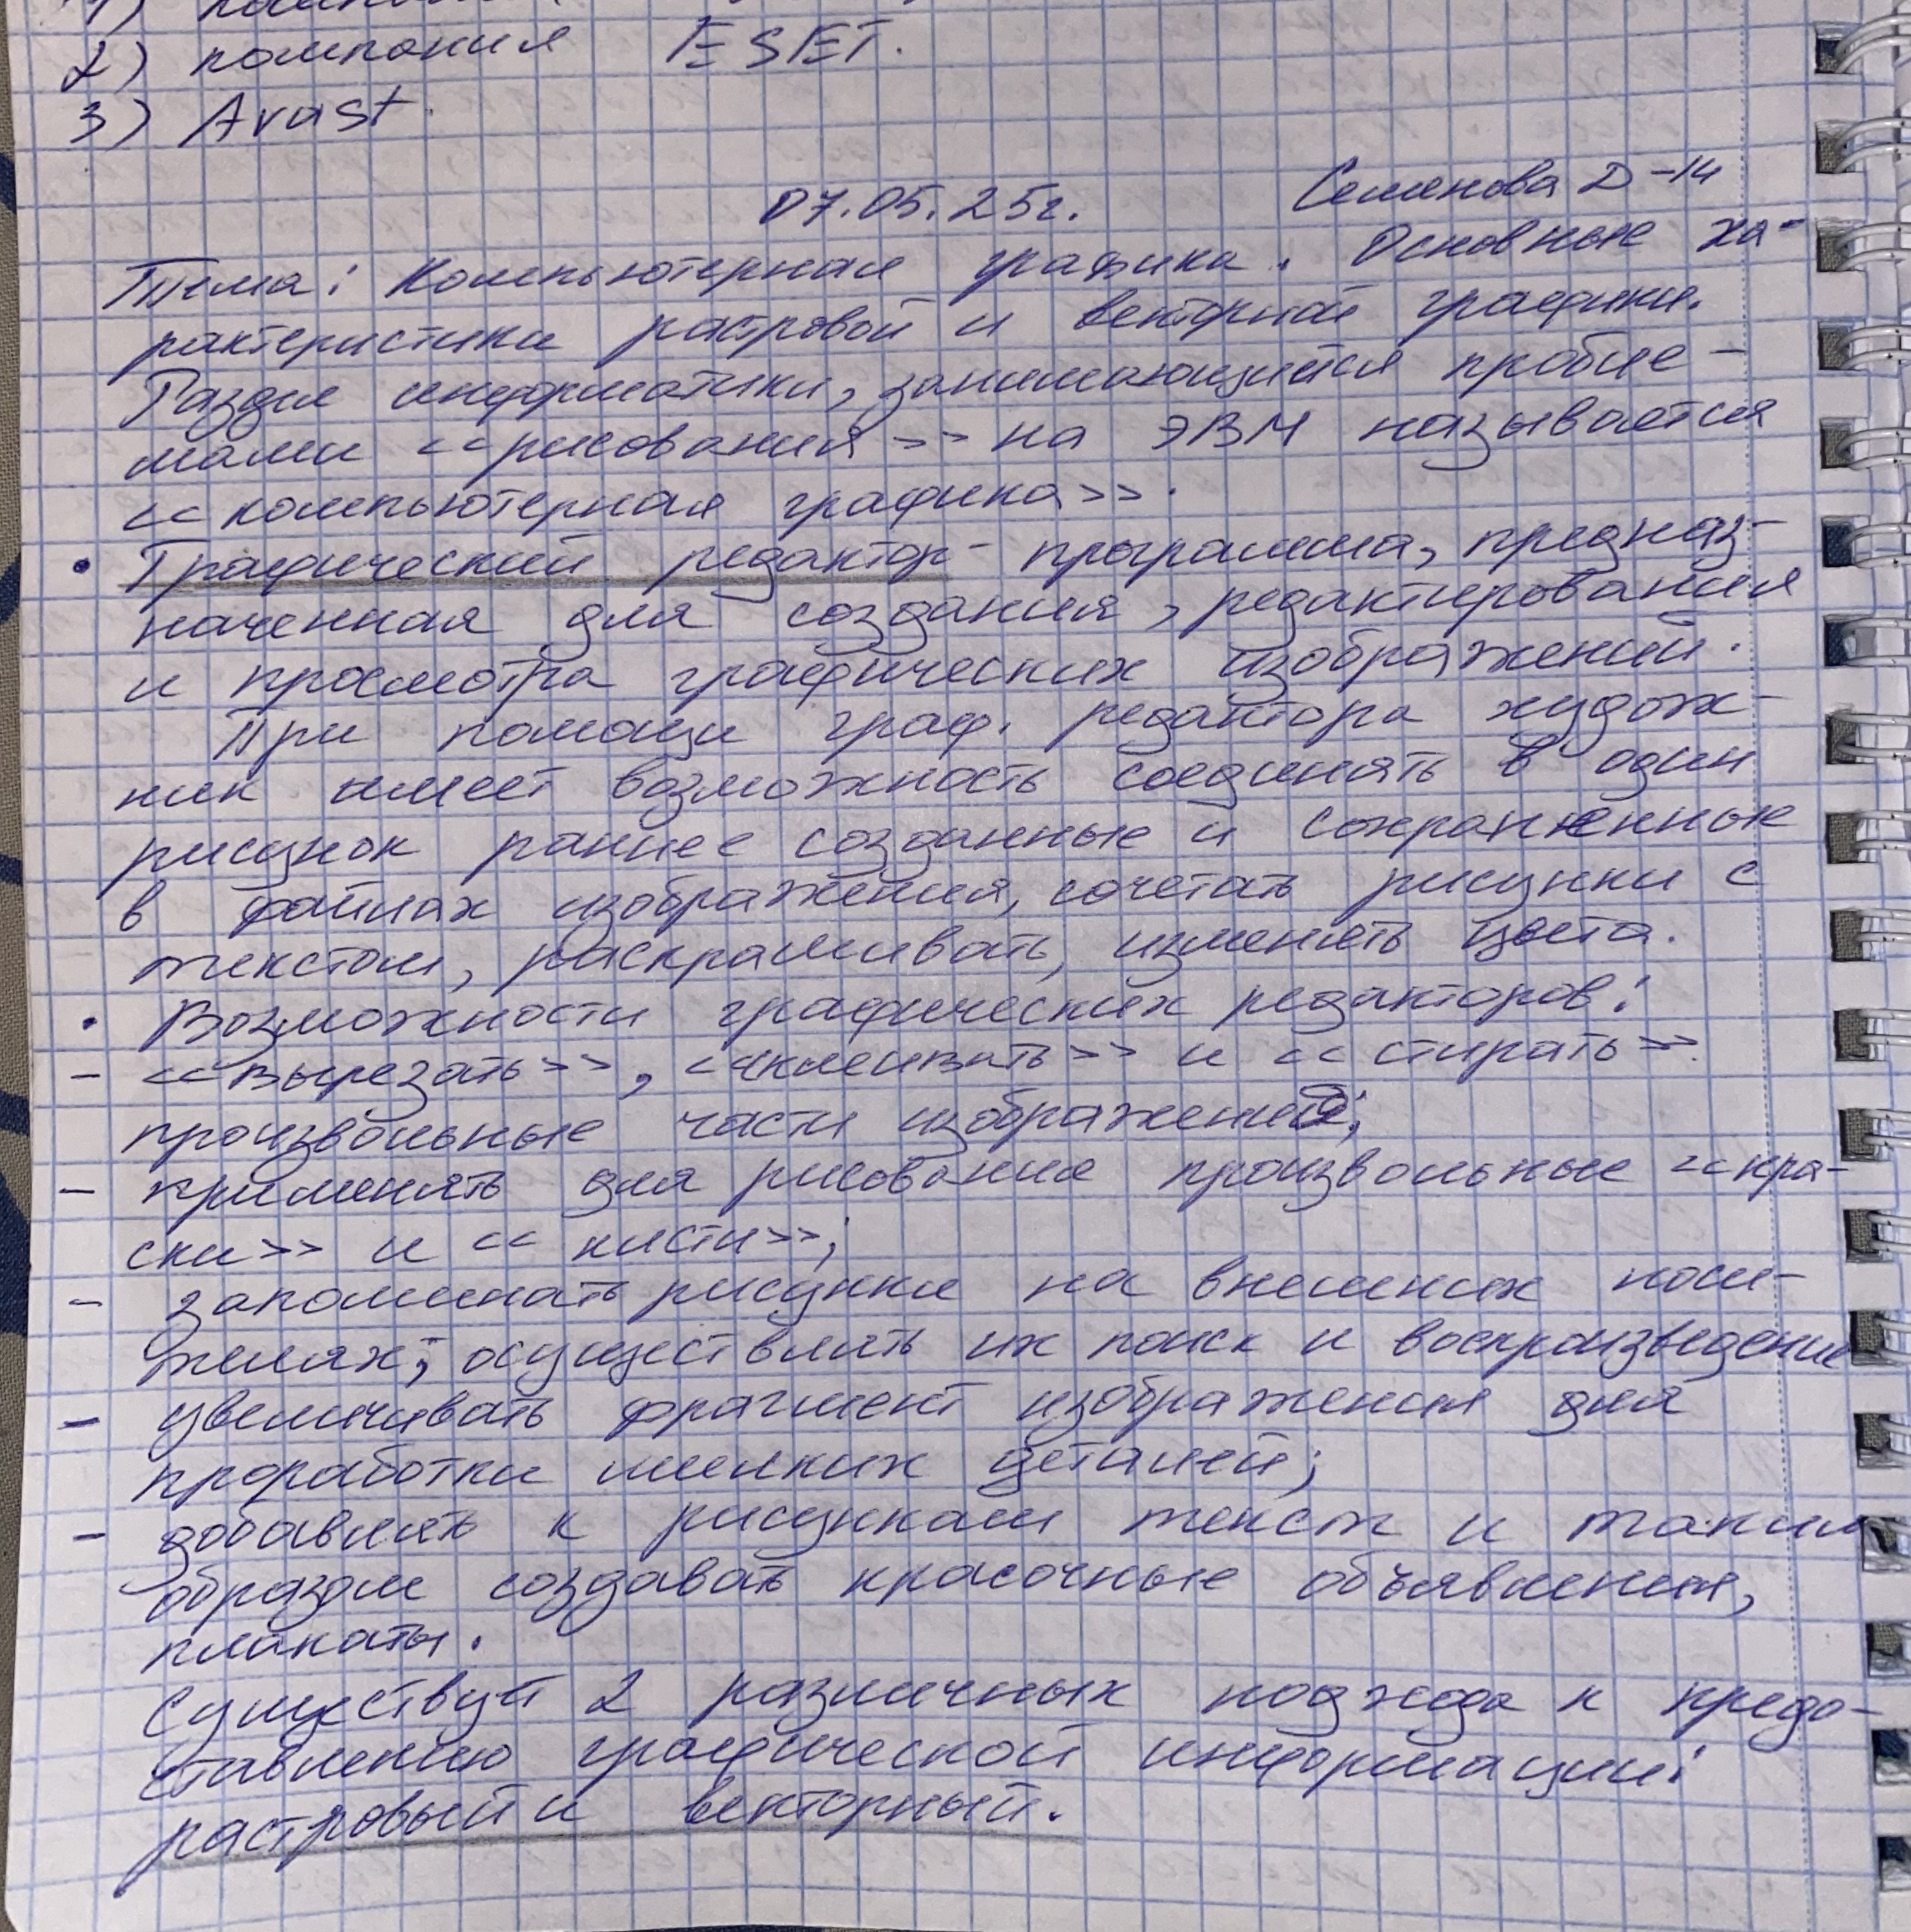 2) компания ESET.
3) Avast.
07.05.25г. Семенова Д-14
Тема: Компьютерная графика. Основные ха-
рактеристики растровой и векторной графики.
Раздел информатики, занимающийся пробле-
мами <<рисования>> на ЭВМ называется
<<компьютерная графика>>.
• Графический редактор - программа, предназ-
наченная для создания, редактирования
и просмотра графических изображений.
При помощи граф. редактора худож-
ник имеет возможность соединять в один
рисунок раннее созданные и сохраненные
в файлах изображения, сочетать рисунки с
текстом, раскрашивать, изменять цвета.
• Возможности графических редакторов:
- <<вырезать>>, <<склеивать>> и <<стирать>>
произвольные части изображений;
- применять для рисования произвольные <<кра-
ски>> и <<кисти>>;
- запоминать рисунки на внешних носи-
телях; осуществлять их поиск и воспроизведение
- увеличивать фрагмент изображения для
проработки мелких деталей;
- добавлять к рисункам текст и таким
образом создавать красочные объявления,
плакаты.
Существует 2 различных подхода к предо-
ставлению графической информации:
растровый и векторный.